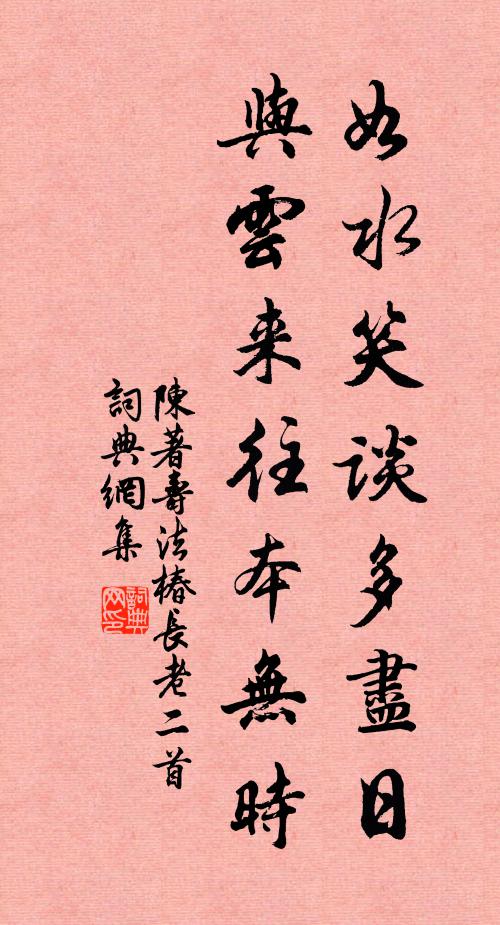 如水笑談多盡日
與雲来往本無時
陳著壽法椿長老二首
詞典網集
詞典
网印